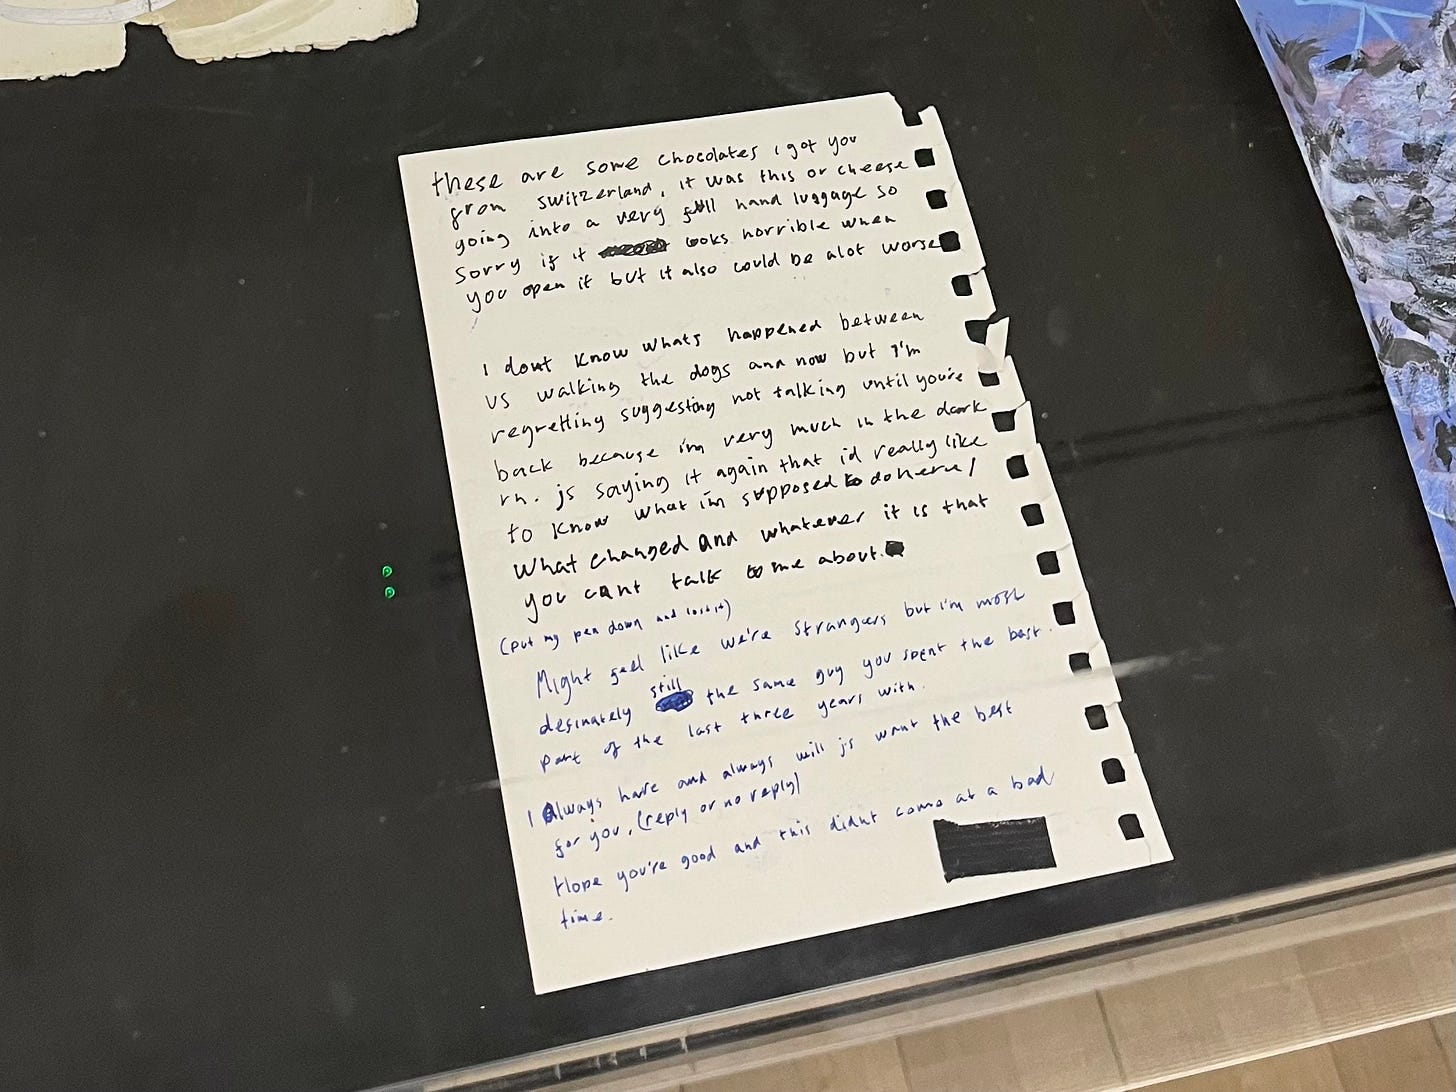 these are some chocolates i got you
from switzerland, it was this or cheese
going into a very full hand luggage so
sorry if it looks horrible when
you open it but it also could be alot worse
I dont know whats happened between
us walking the dogs and now but I'm
regretting suggesting not talking until you're
back because i'm very much in the dark
rn. js saying it again that id really like
to know what i'm supposed to do here/
what changed and whatever it is that
you cant talk to me about.
(put my pen down and lost it)
Might feel like we're strangers but i'm most
desinately still the same guy you spent the best
part of the last three years with.
I Always have and always will js want the best
for you. (reply or no reply)
Hope you're good and this didnt come at a bad
time.